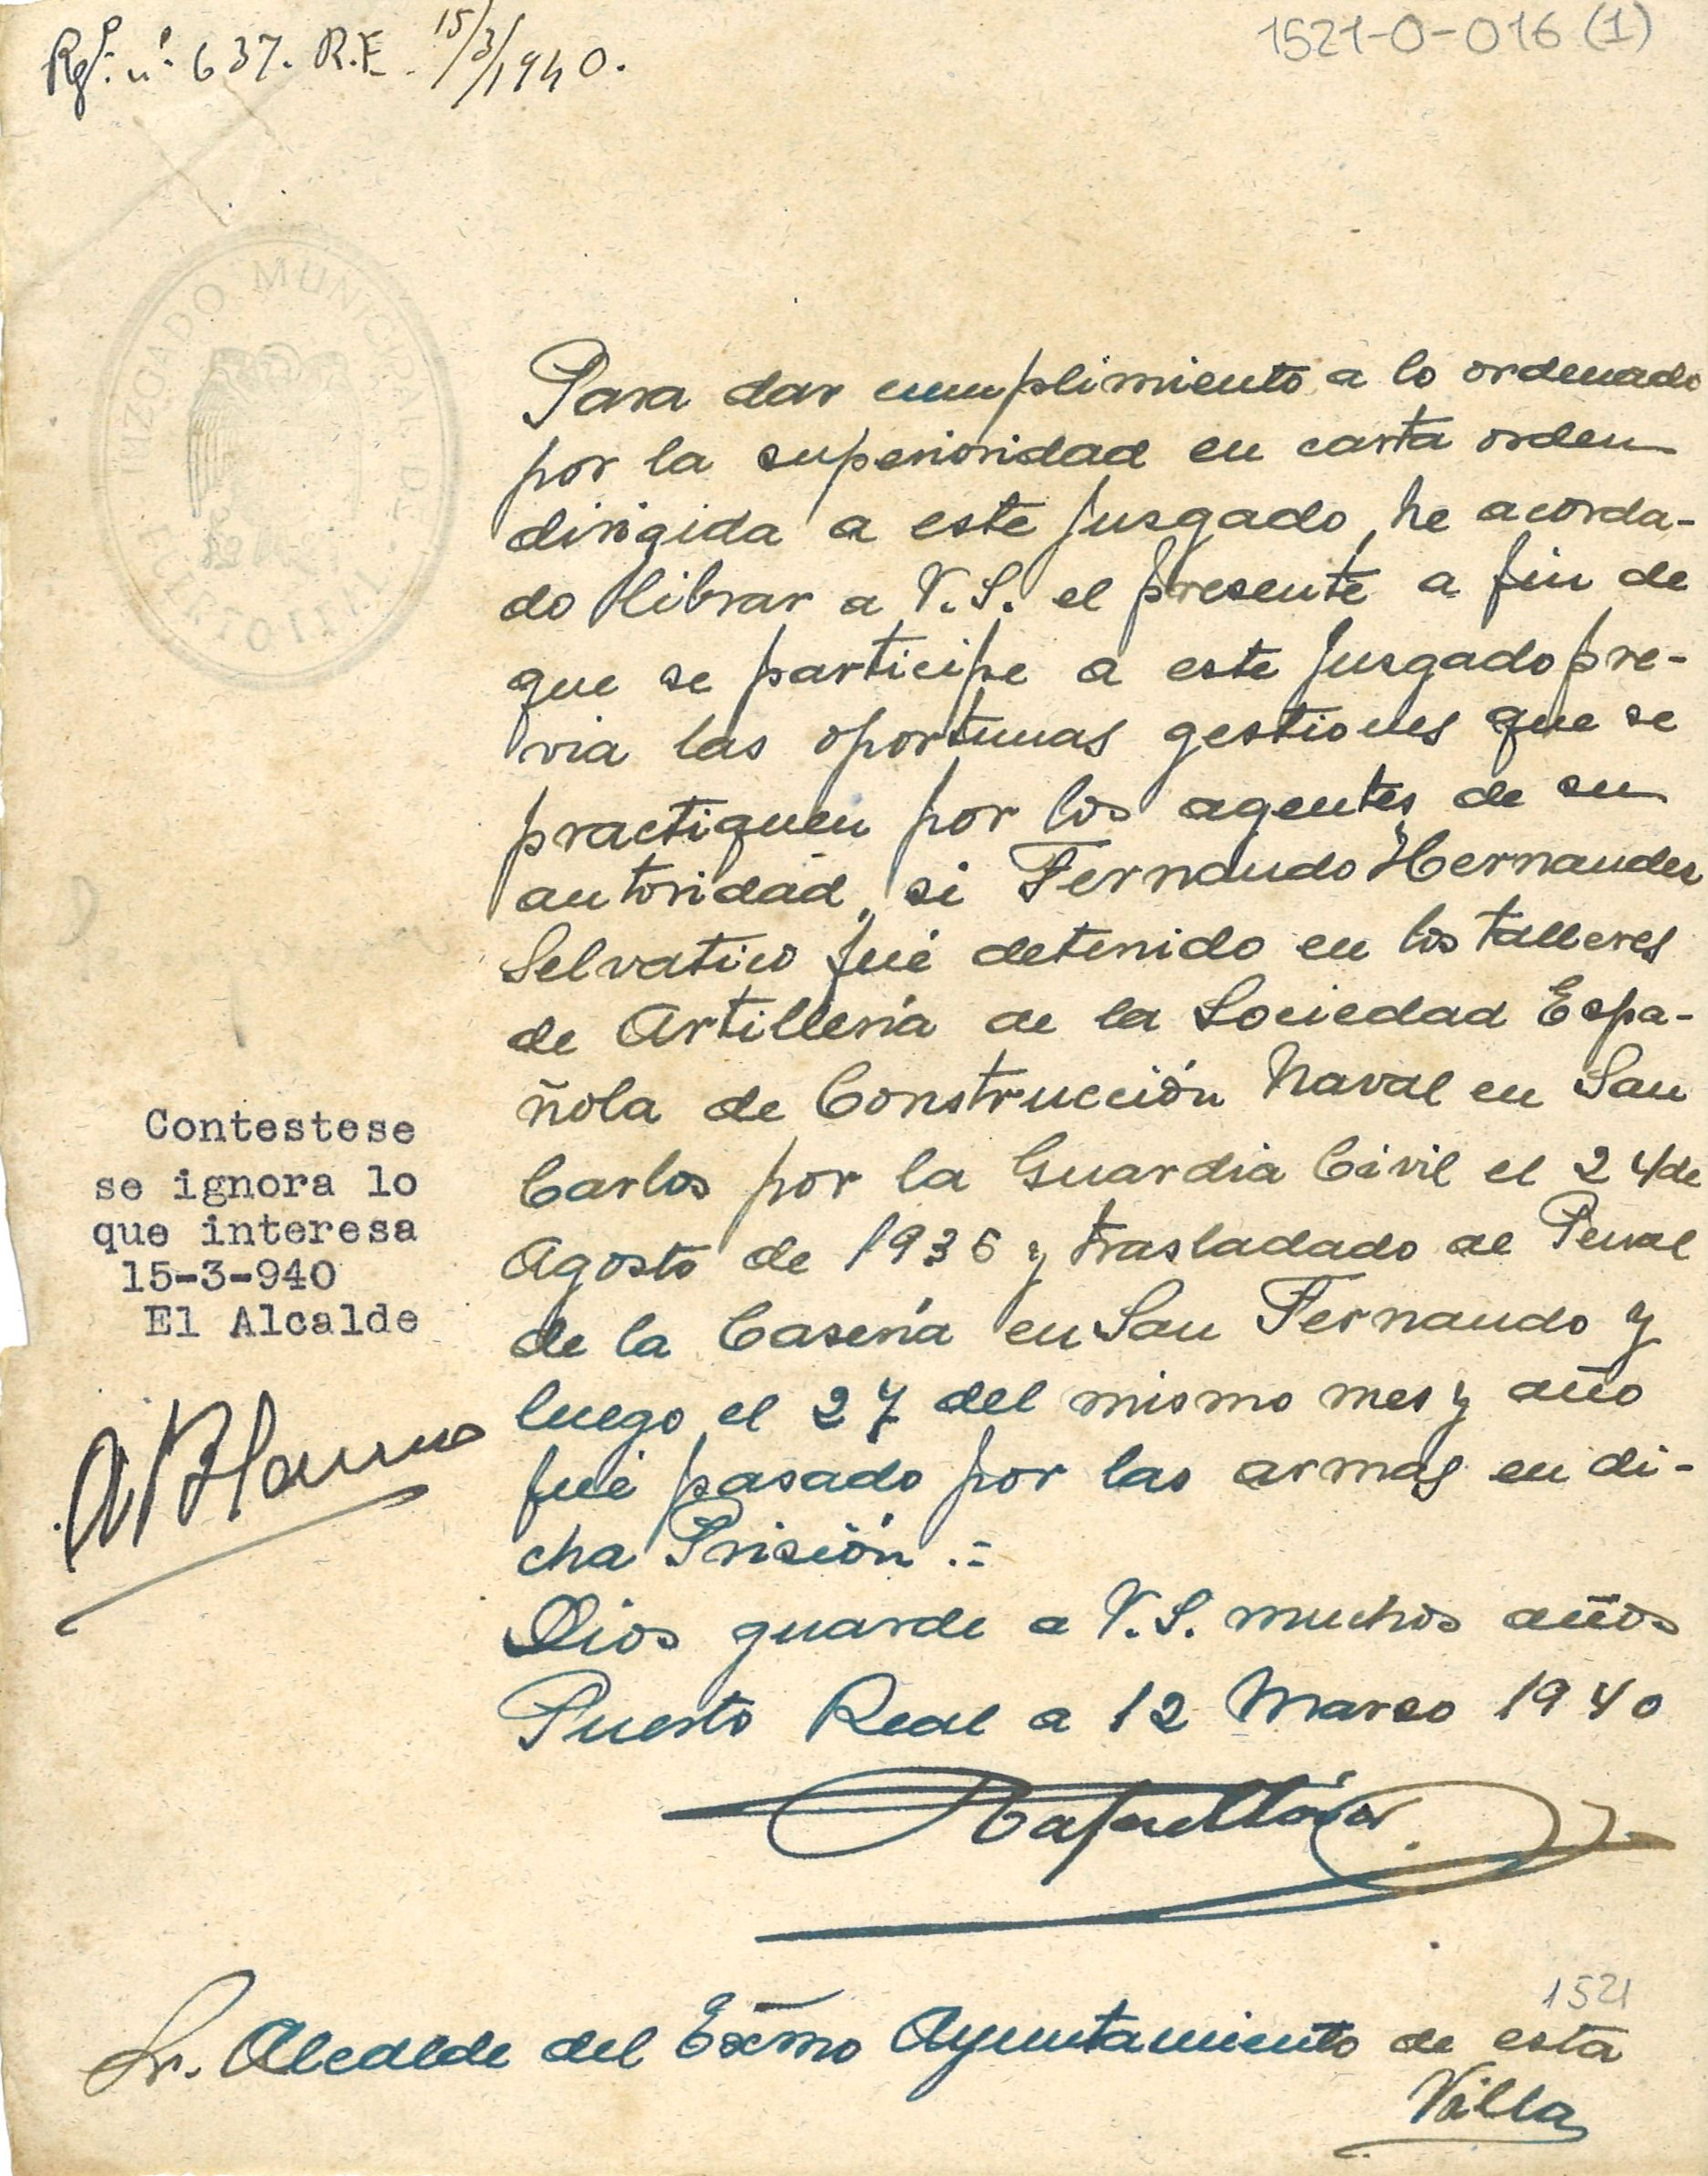 Rgº. nº. 637. R.E. 15/3/1940.
1521-0-016 (1)
JUZGADO MUNICIPAL DE
Para dar cumplimiento a lo ordenado
por la superioridad en carta orden
dirigida a este Jusgado, he acorda-
do librar a V.S. el presente a fin de
que se participe a este Jusgado pre-
via las oportunas gestiones que se
practiquen por los agentes de su
autoridad, si Fernando Hernandez
Selvatico fué detenido en los talleres
de Artillería de la Sociedad Espa-
ñola de Construcción Naval en San
Carlos por la Guardia Civil el 24 de
Agosto de 1936 y trasladado al Penal
de la Casería en San Fernando y
luego el 27 del mismo mes y año
fué pasado por las armas en di-
cha Prisión .=
Dios guarde a V.S. muchos años
Puerto Real a 12 Marso 1940
Contestese
se ignora lo
que interesa
15-3-940
El Alcalde
1521
Sr. Alcalde del Exmo Ayuntamiento de esta
Villa